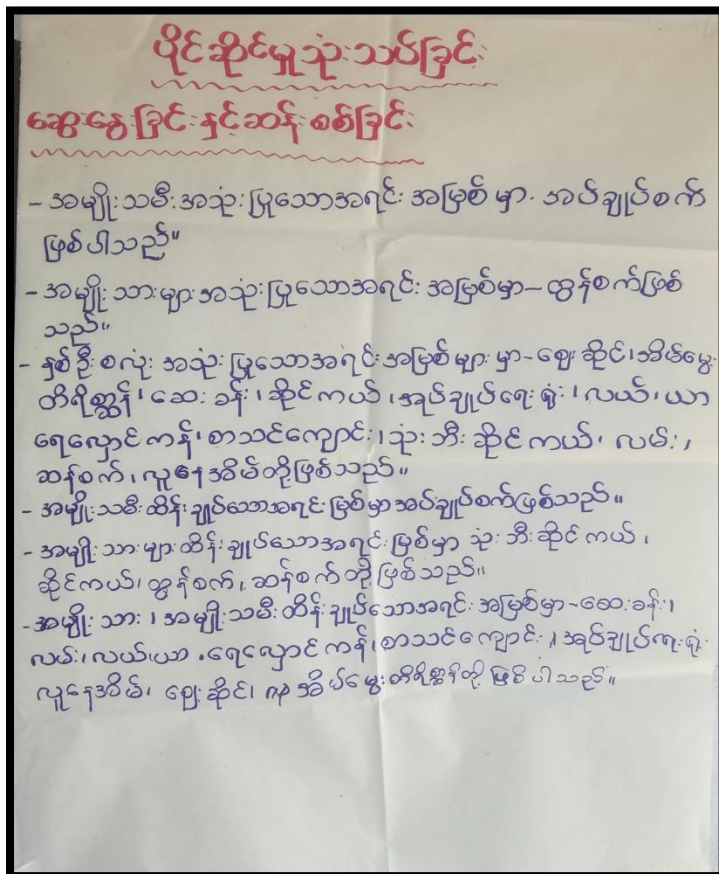 ပိုင်ဆိုင်မှုသုံးသပ်ခြင်း
ဆွေးနွေးခြင်းနှင့်ဆန်းစစ်ခြင်း
- အမျိုးသမီးအသုံးပြုသောအရင်းအမြစ်မှာ အပ်ချုပ်စက်
ဖြစ်ပါသည်။
- အမျိုးသားများအသုံးပြုသောအရင်းအမြစ်မှာ-ထွန်စက်ဖြစ်
သည်။
- နှစ်ဦးစလုံးအသုံးပြုသောအရင်းအမြစ်များမှာ-ဈေးဆိုင်၊အိမ်မွေး
တိရိစ္ဆာန်၊ ဆေးခန်း၊ ဆိုင်ကယ်၊အုပ်ချုပ်ရေးရုံး၊လယ်၊ယာ
ရေလှောင်ကန်၊စာသင်ကျောင်း၊သုံးဘီးဆိုင်ကယ်၊ လမ်း၊
ဆန်စက်၊လူနေအိမ်တို့ဖြစ်သည်။
- အမျိုးသမီးထိန်းချုပ်သောအရင်းမြစ်မှာအပ်ချုပ်စက်ဖြစ်သည်။
- အမျိုးသားများထိန်းချုပ်သောအရင်းမြစ်မှာ သုံးဘီးဆိုင်ကယ်၊
ဆိုင်ကယ်၊ထွန်စက်၊ဆန်စက်တို့ဖြစ်သည်။
-အမျိုးသား၊အမျိုးသမီးထိန်းချုပ်သောအရင်းအမြစ်မှာ-ဆေးခန်း၊
လမ်း၊လယ်၊ယာ၊ရေလှောင်ကန်၊စာသင်ကျောင်း၊အုပ်ချုပ်ရေးရုံး
လူနေအိမ်၊ ဈေးဆိုင်၊ အိမ်မွေးတိရိစ္ဆာန်တို့ဖြစ်ပါသည်။